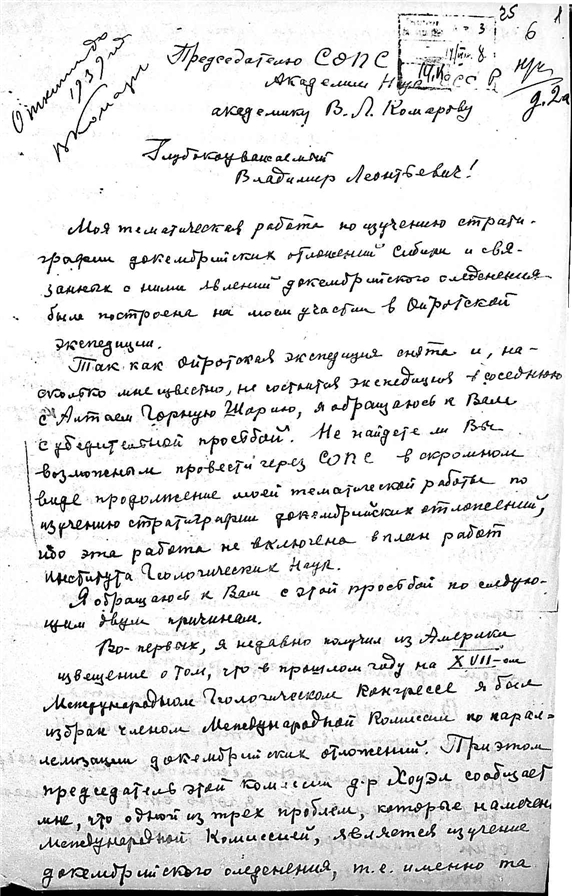 25
6
1
Отклонено
1939 г.
В Комаров
Председателю СОПС
Академии Наук СССР
академику В. Л. Комарову
д. 2а
Глубокоуважаемый
Владимир Леонтьевич!
Моя тематическая работа по изучению страти-
графии докембрийских отложений Сибири и свя-
занных с ними явлений докембрийского оледенения
была построена на моем участии в Ойротской
экспедиции.
Так как Ойротская экспедиция снята и, на-
сколько мне известно, не состоится экспедиция в соседнюю
с Алтаем Горную Шорию, я обращаюсь к Вам
с убедительной просьбой. Не найдете ли Вы
возможным провести через СОПС в скромном
виде продолжение моей тематической работы по
изучению стратиграфии докембрийских отложений,
ибо эта работа не включена в план работ
Института Геологических Наук.
Я обращаюсь к Вам с этой просьбой по следую-
щим двум причинам.
Во-первых, я недавно получил из Америки
извещение о том, что в прошлом году на XVII-ом
Международном Геологическом Конгрессе я был
избран членом Международной Комиссии по парал-
лелизации докембрийских отложений. При этом
председатель этой комиссии д-р Хоуэл сообщает
мне, что одной из трех проблем, которые намечены
Международной Комиссией, является изучение
докембрийского оледенения, т.е. именно та